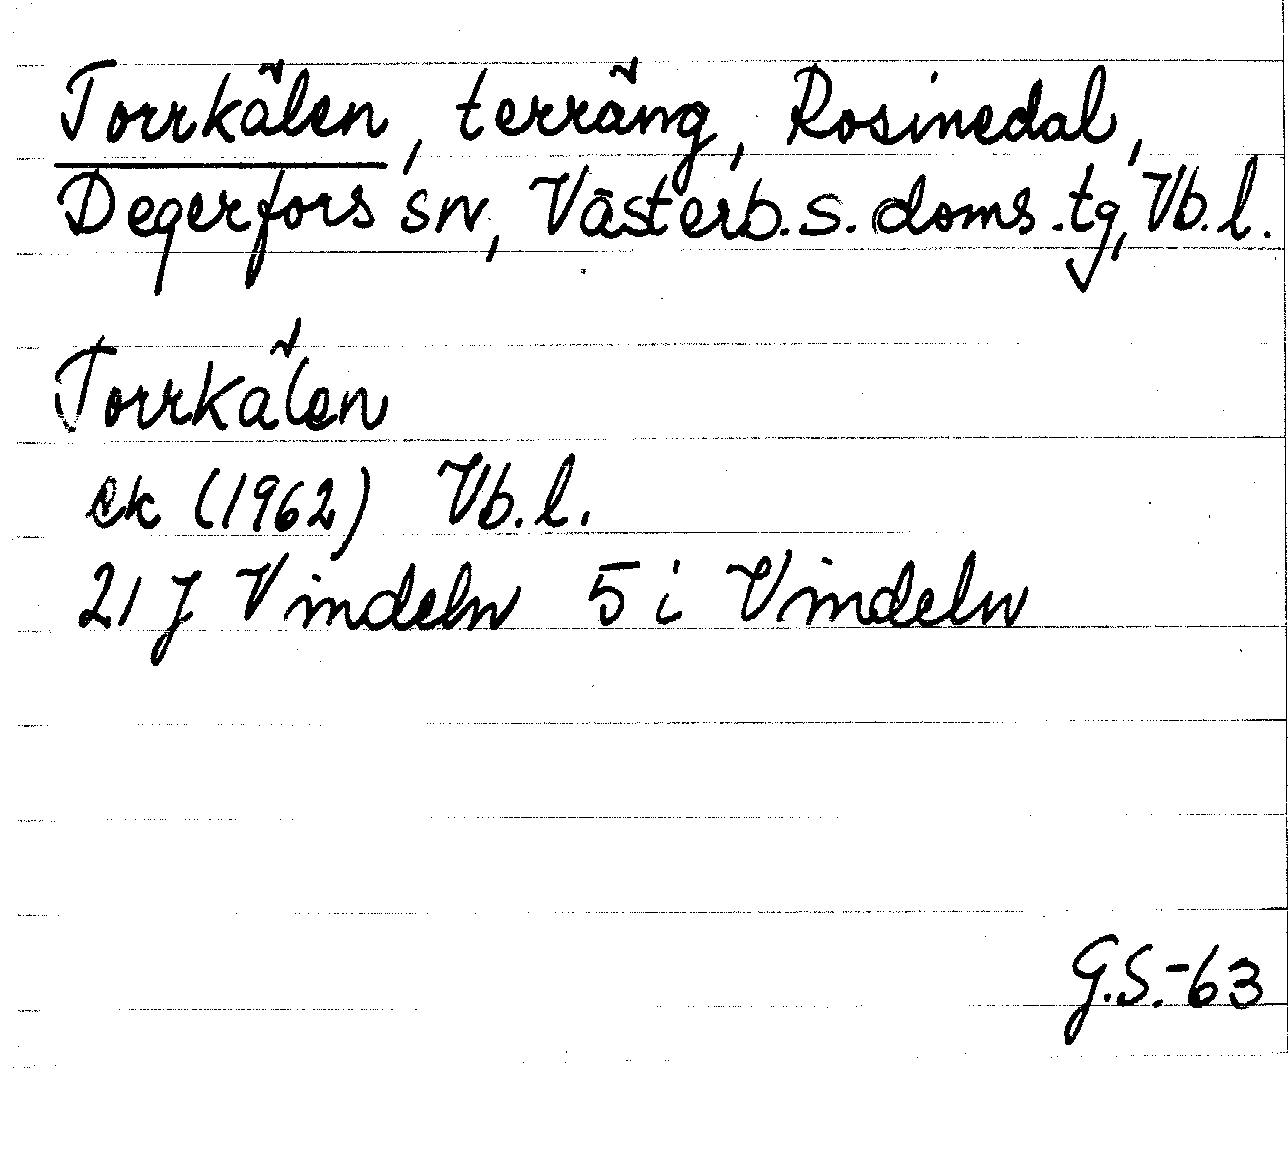 Torrkälen, terräng, Rosinedal,
Degerfors sn, Västerb.s.doms.tg, Vb.l.
Torrkälen
ek (1962) Vb.l.
21 J Vindeln 5 i Vindeln
G.S.-63